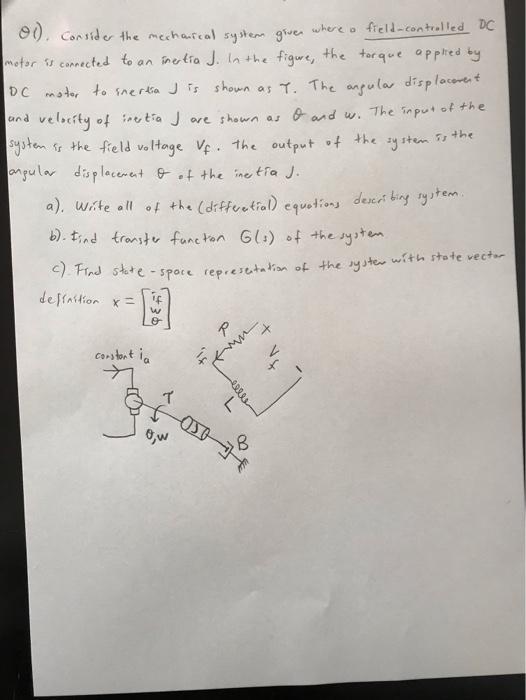 Q1). Consider the mechanical system given where a field-controlled DC
motor is connected to an inertia J. In the figure, the torque applied by
DC motor to inertia J is shown as T. The angular displacement
and velocity of inertia J are shown as θ and w. The input of the
system is the field voltage Vf. The output of the system is the
angular displacement θ of the inertia J.
a). Write all of the (differential) equations describing system.
b). Find transfer function G(s) of the system
c). Find state-space representation of the system with state vector
definition x = [if w θ]
R
Vf
if
constant ia
L
T
J
θ,w
B